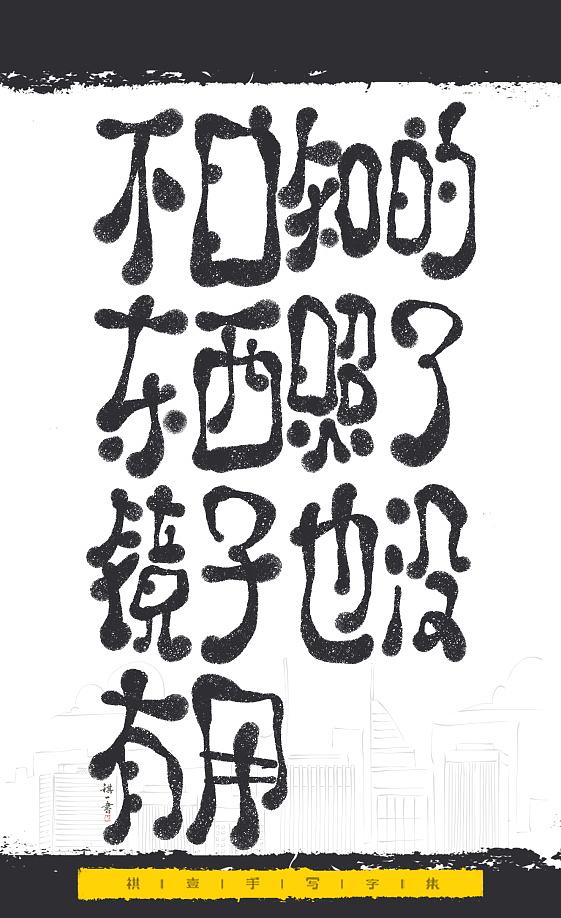 不自知的
东西照了
镜子也没
有用
祺一书
祺|壹|手|写|字|集